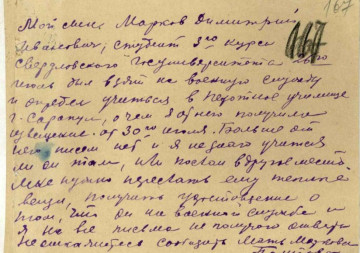 167
Мой сын Марков Димитрий 167
Иванович, студент 3го курса
Свердловского Госуниверситета
был взят на военную службу
и отребыл учиться в пехотное училище
г. Сарапул, о чем я от него получила
извещение от 30го июля. Больше от
него писем нет и я не знаю учится
ли он там, или послан в друг. место.
Мне нужно переслать ему теплые
вещи, получить удостоверение о
том, что он на военной службе и
я на все письма не получаю ответы
Не откажитесь сообщить. Мать Маркова